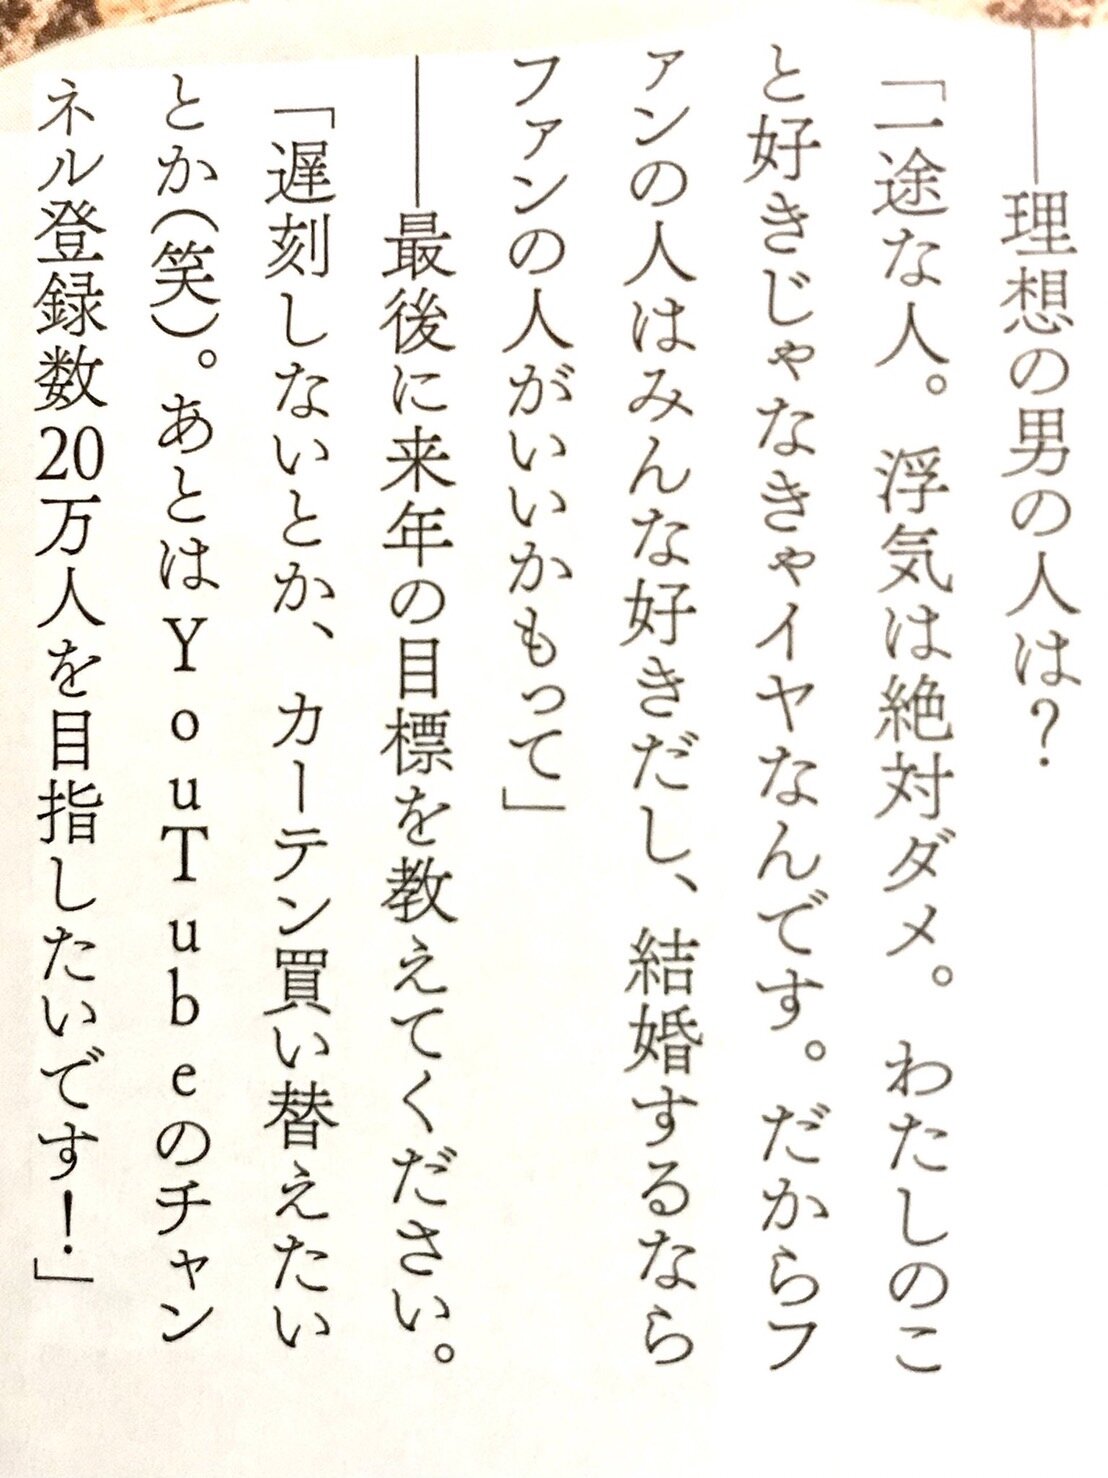 ――理想の男の人は?
「一途な人。浮気は絶対ダメ。わたしのこ
と好きじゃなきゃイヤなんです。だからフ
ァンの人はみんな好きだし、結婚するなら
ファンの人がいいかもって」
――最後に来年の目標を教えてください。
「遅刻しないとか、カーテン買い替えたい
とか(笑)。あとはYouTubeのチャン
ネル登録数20万人を目指したいです!」